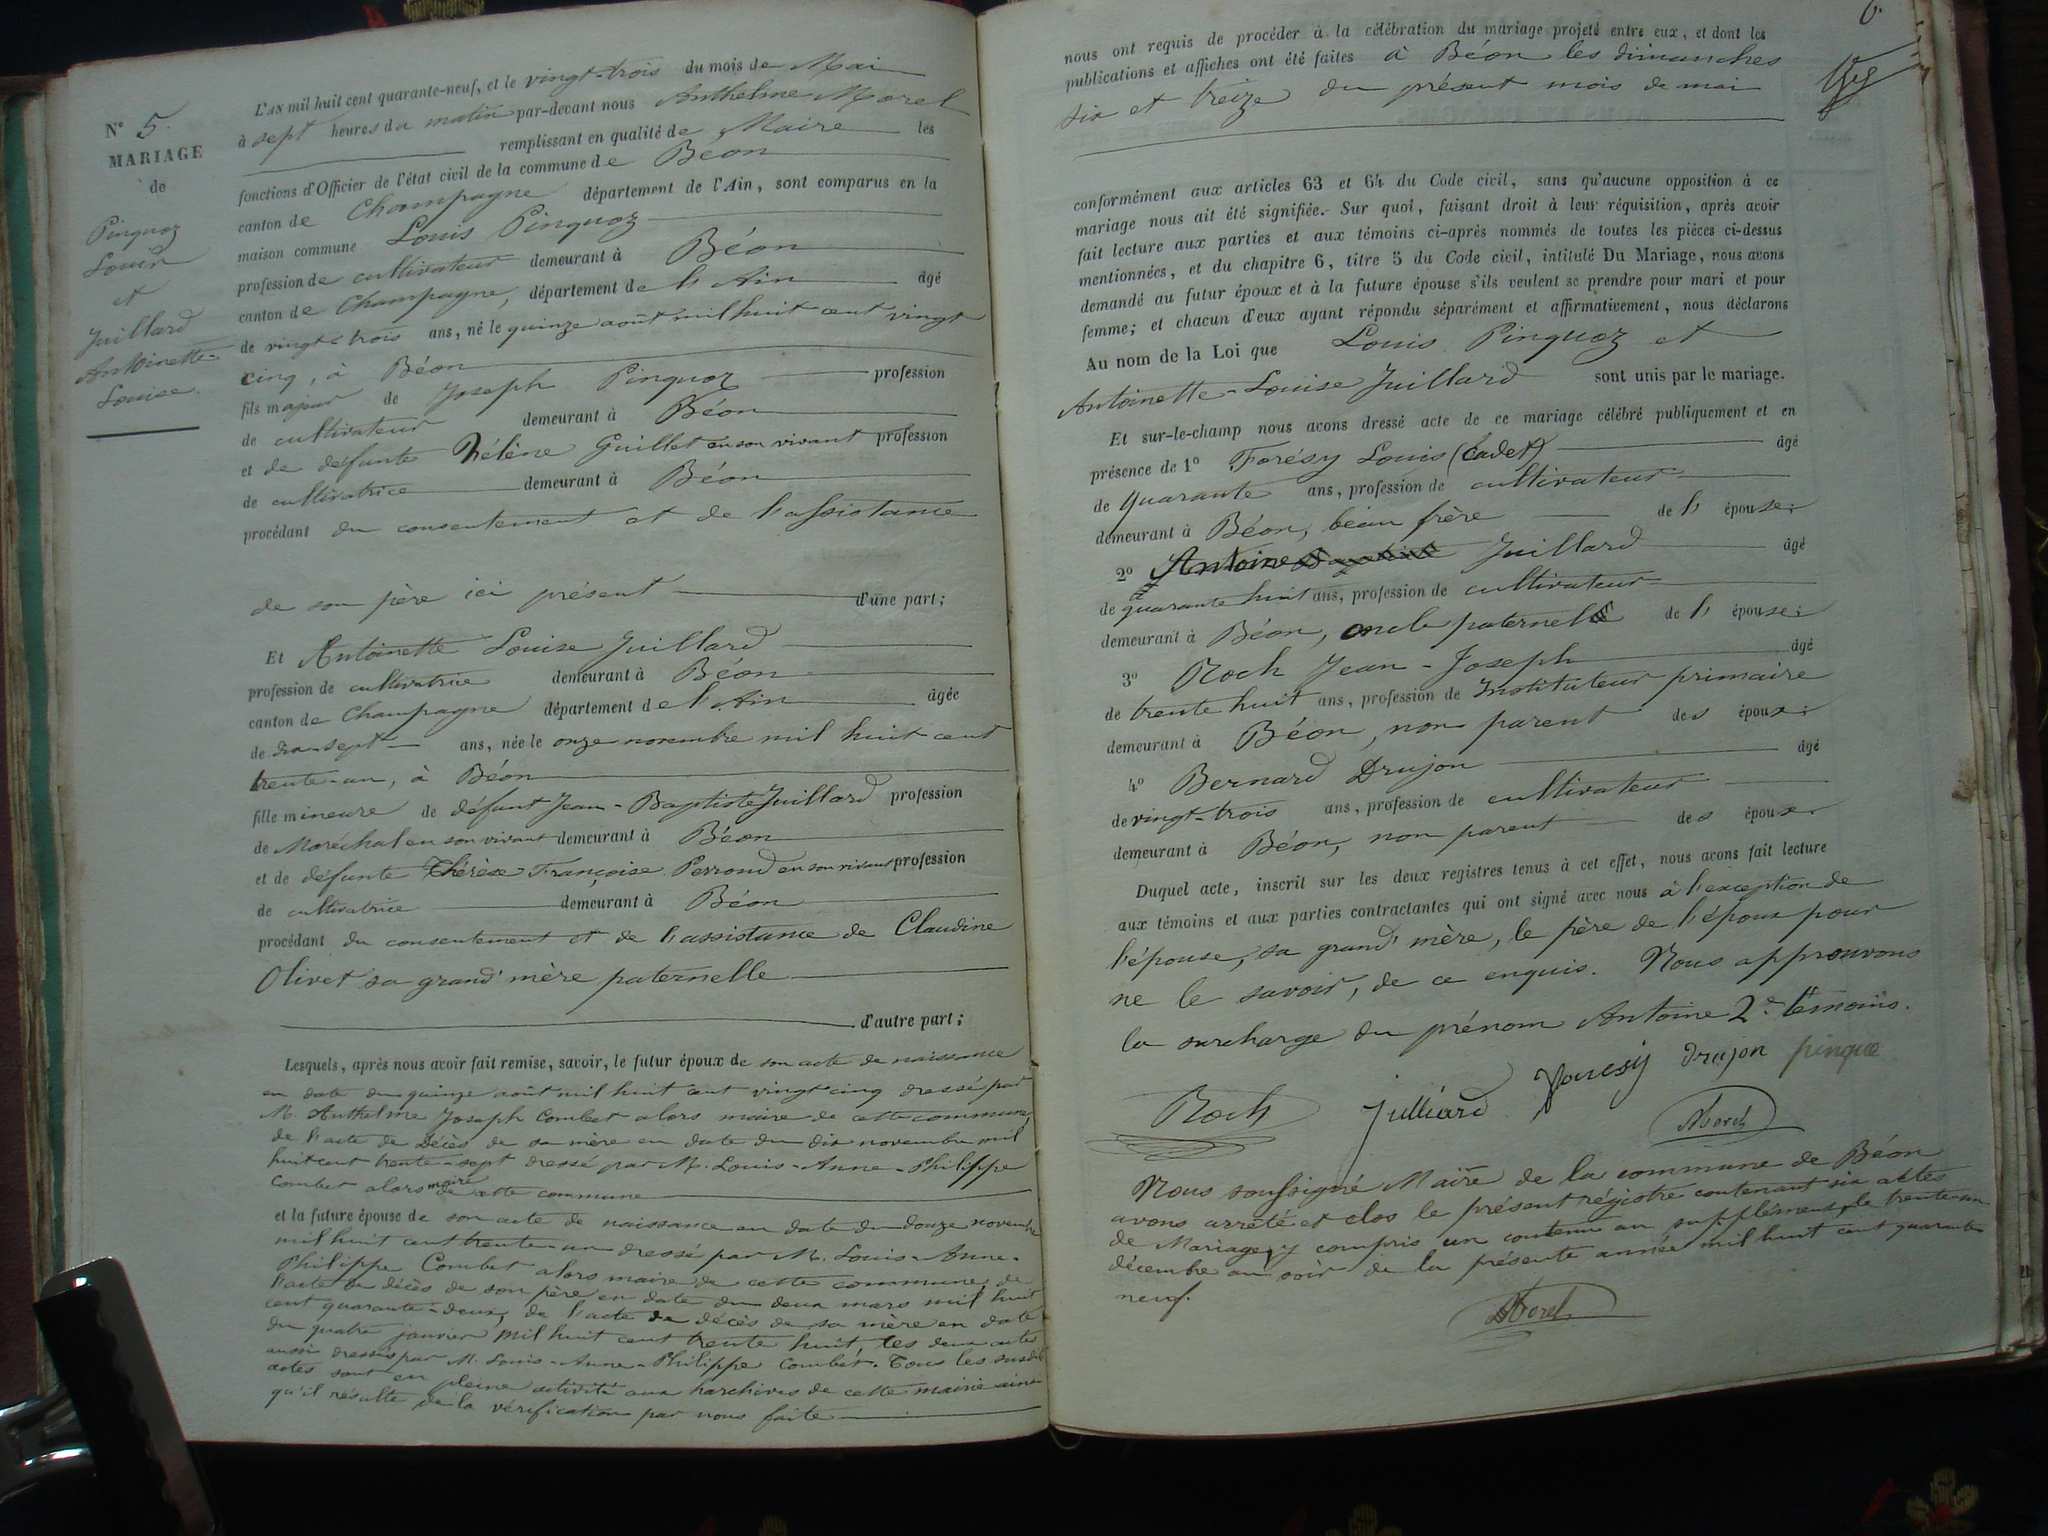 N° 5.
MARIAGE
de
Pinquoz
Louis
et
Juillard
Antoinette-
Louise.
L'AN mil huit cent quarante-neuf, et le vingt-trois du mois de Mai
à sept heures du matin par-devant nous Anthelme Morel
remplissant en qualité de Maire les
fonctions d'Officier de l'état civil de la commune de Béon
canton de Champagne département de l'Ain, sont comparus en la
maison commune Louis Pinquoz
profession de cultivateur demeurant à Béon
canton de Champagne, département de l'Ain âgé
de vingt-trois ans, né le quinze août mil huit cent vingt
cinq, à Béon
fils majeur de Joseph Pinquoz profession
de cultivateur demeurant à Béon
et de défunte Hélène Guillet en son vivant profession
de cultivatrice demeurant à Béon
procédant du consentement et de l'assistance
de son père ici présent d'une part;
Et Antoinette Louise Juillard
profession de cultivatrice demeurant à Béon
canton de Champagne département de l'Ain âgée
de dix-sept ans, née le onze novembre mil huit cent
trente-un, à Béon
fille mineure de défunt Jean-Baptiste Juillard profession
de Maréchal en son vivant demeurant à Béon
et de défunte Thérèse Françoise Perrond en son vivant profession
de cultivatrice demeurant à Béon
procédant du consentement et de l'assistance de Claudine
Olivet sa grand'mère paternelle
d'autre part;
Lesquels, après nous avoir fait remise, savoir, le futur époux de son acte de naissance
en date du quinze août mil huit cent vingt cinq dressé par
M. Anthelme Joseph Combet alors maire de cette commune,
de l'acte de Décès de sa mère en date du dix novembre mil
huit cent trente-sept dressé par M. Louis-Anne-Philippe
Combet alors maire de cette commune
et la future épouse de son acte de naissance en date du douze novembre
mil huit cent trente-un dressé par M. Louis-Anne-
Philippe Combet alors maire de cette commune, de
l'acte de décès de son père en date du deux mars mil huit
cent quarante-deux, de l'acte de décès de sa mère en date
du quatre janvier mil huit cent trente huit, les deux actes
aussi dressés par M. Louis-Anne-Philippe Combet. Tous les susdits
actes sont en pleine activité aux harchives de cette mairie ainsi
qu'il résulte de la vérification par nous faite
6.
nous ont requis de procéder à la célébration du mariage projeté entre eux, et dont les
publications et affiches ont été faites à Béon les dimanches
six et treize du présent mois de mai
conformément aux articles 63 et 64 du Code civil, sans qu'aucune opposition à ce
mariage nous ait été signifiée. Sur quoi, faisant droit à leur réquisition, après avoir
fait lecture aux parties et aux témoins ci-après nommés de toutes les pièces ci-dessus
mentionnées, et du chapitre 6, titre 5 du Code civil, intitulé Du Mariage, nous avons
demandé au futur époux et à la future épouse s'ils veulent se prendre pour mari et pour
femme; et chacun d'eux ayant répondu séparément et affirmativement, nous déclarons
Au nom de la Loi que Louis Pinquoz et
Antoinette-Louise Juillard sont unis par le mariage.
Et sur-le-champ nous avons dressé acte de ce mariage célébré publiquement et en
présence de 1° Forésy Louis (Cadet) âgé
de Quarante ans, profession de cultivateur
demeurant à Béon, beau frère de l'épouse;
2° Antoine Juillard âgé
de quarante huit ans, profession de cultivateur
demeurant à Béon, oncle paternel de l'épouse;
3° Roch Jean-Joseph âgé
de trente huit ans, profession de Instituteur primaire
demeurant à Béon, non parent des époux;
4° Bernard Drujon âgé
de vingt-trois ans, profession de cultivateur
demeurant à Béon, non parent des époux.
Duquel acte, inscrit sur les deux registres tenus à cet effet, nous avons fait lecture
aux témoins et aux parties contractantes qui ont signé avec nous à l'exception de
l'épouse, sa grand'mère, le père de l'époux pour
ne le savoir, de ce enquis. Nous approuvons
la surcharge du prénom Antoine 2e témoins.
Roch Julliard Foresy drujon pinque
AMorel
Nous soussigné Maire de la commune de Béon
avons arrêté et clos le présent régistre contenant six actes
de Mariage, y compris un contenu au supplément, le trente-un
décembre au soir de la présente année mil huit cent quarante
neuf.
AMorel